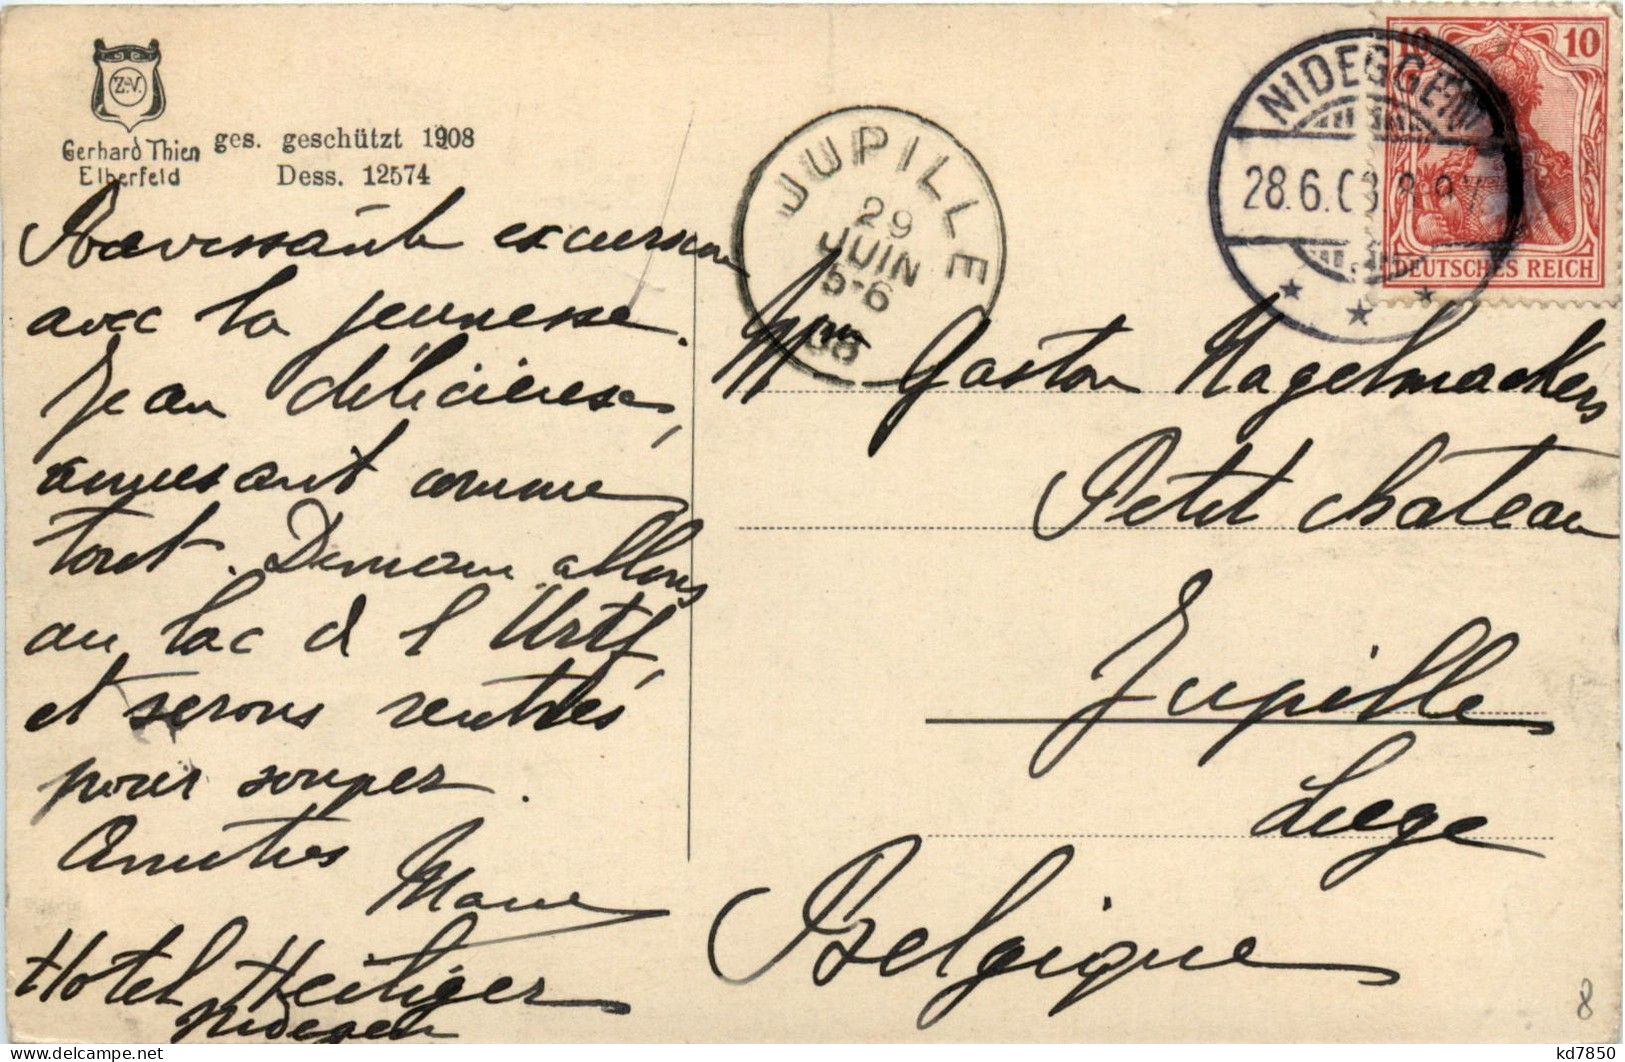 Z.V.
Gerhard Thien
Elberfeld
ges. geschützt 1908
Dess. 12574
JUPILLE
29
JUIN
5-6
08
NIDEGGEN
28.6.08
10 10
DEUTSCHES REICH
Ravissante excursion
avec la jeunesse.
Jean délicieuse,
amusant comme
tout. Demain allons
au lac d l'Urft
et serons rentrés
pour souper.
Amitiés
Marie
Hotel Heiliger
Nideggen
Mme Gaston Nagelmackers
Petit chateau
Jupille
Liege
Belgique
8
kd7850